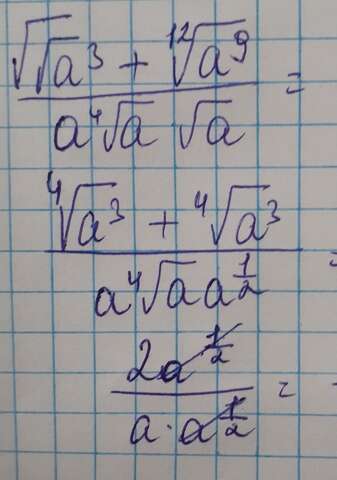 √√a³ + ¹²√a⁹ / a ⁴√a √a =
⁴√a³ + ⁴√a³ / a ⁴√a a^½ =
2a^½ / a · a^½ =